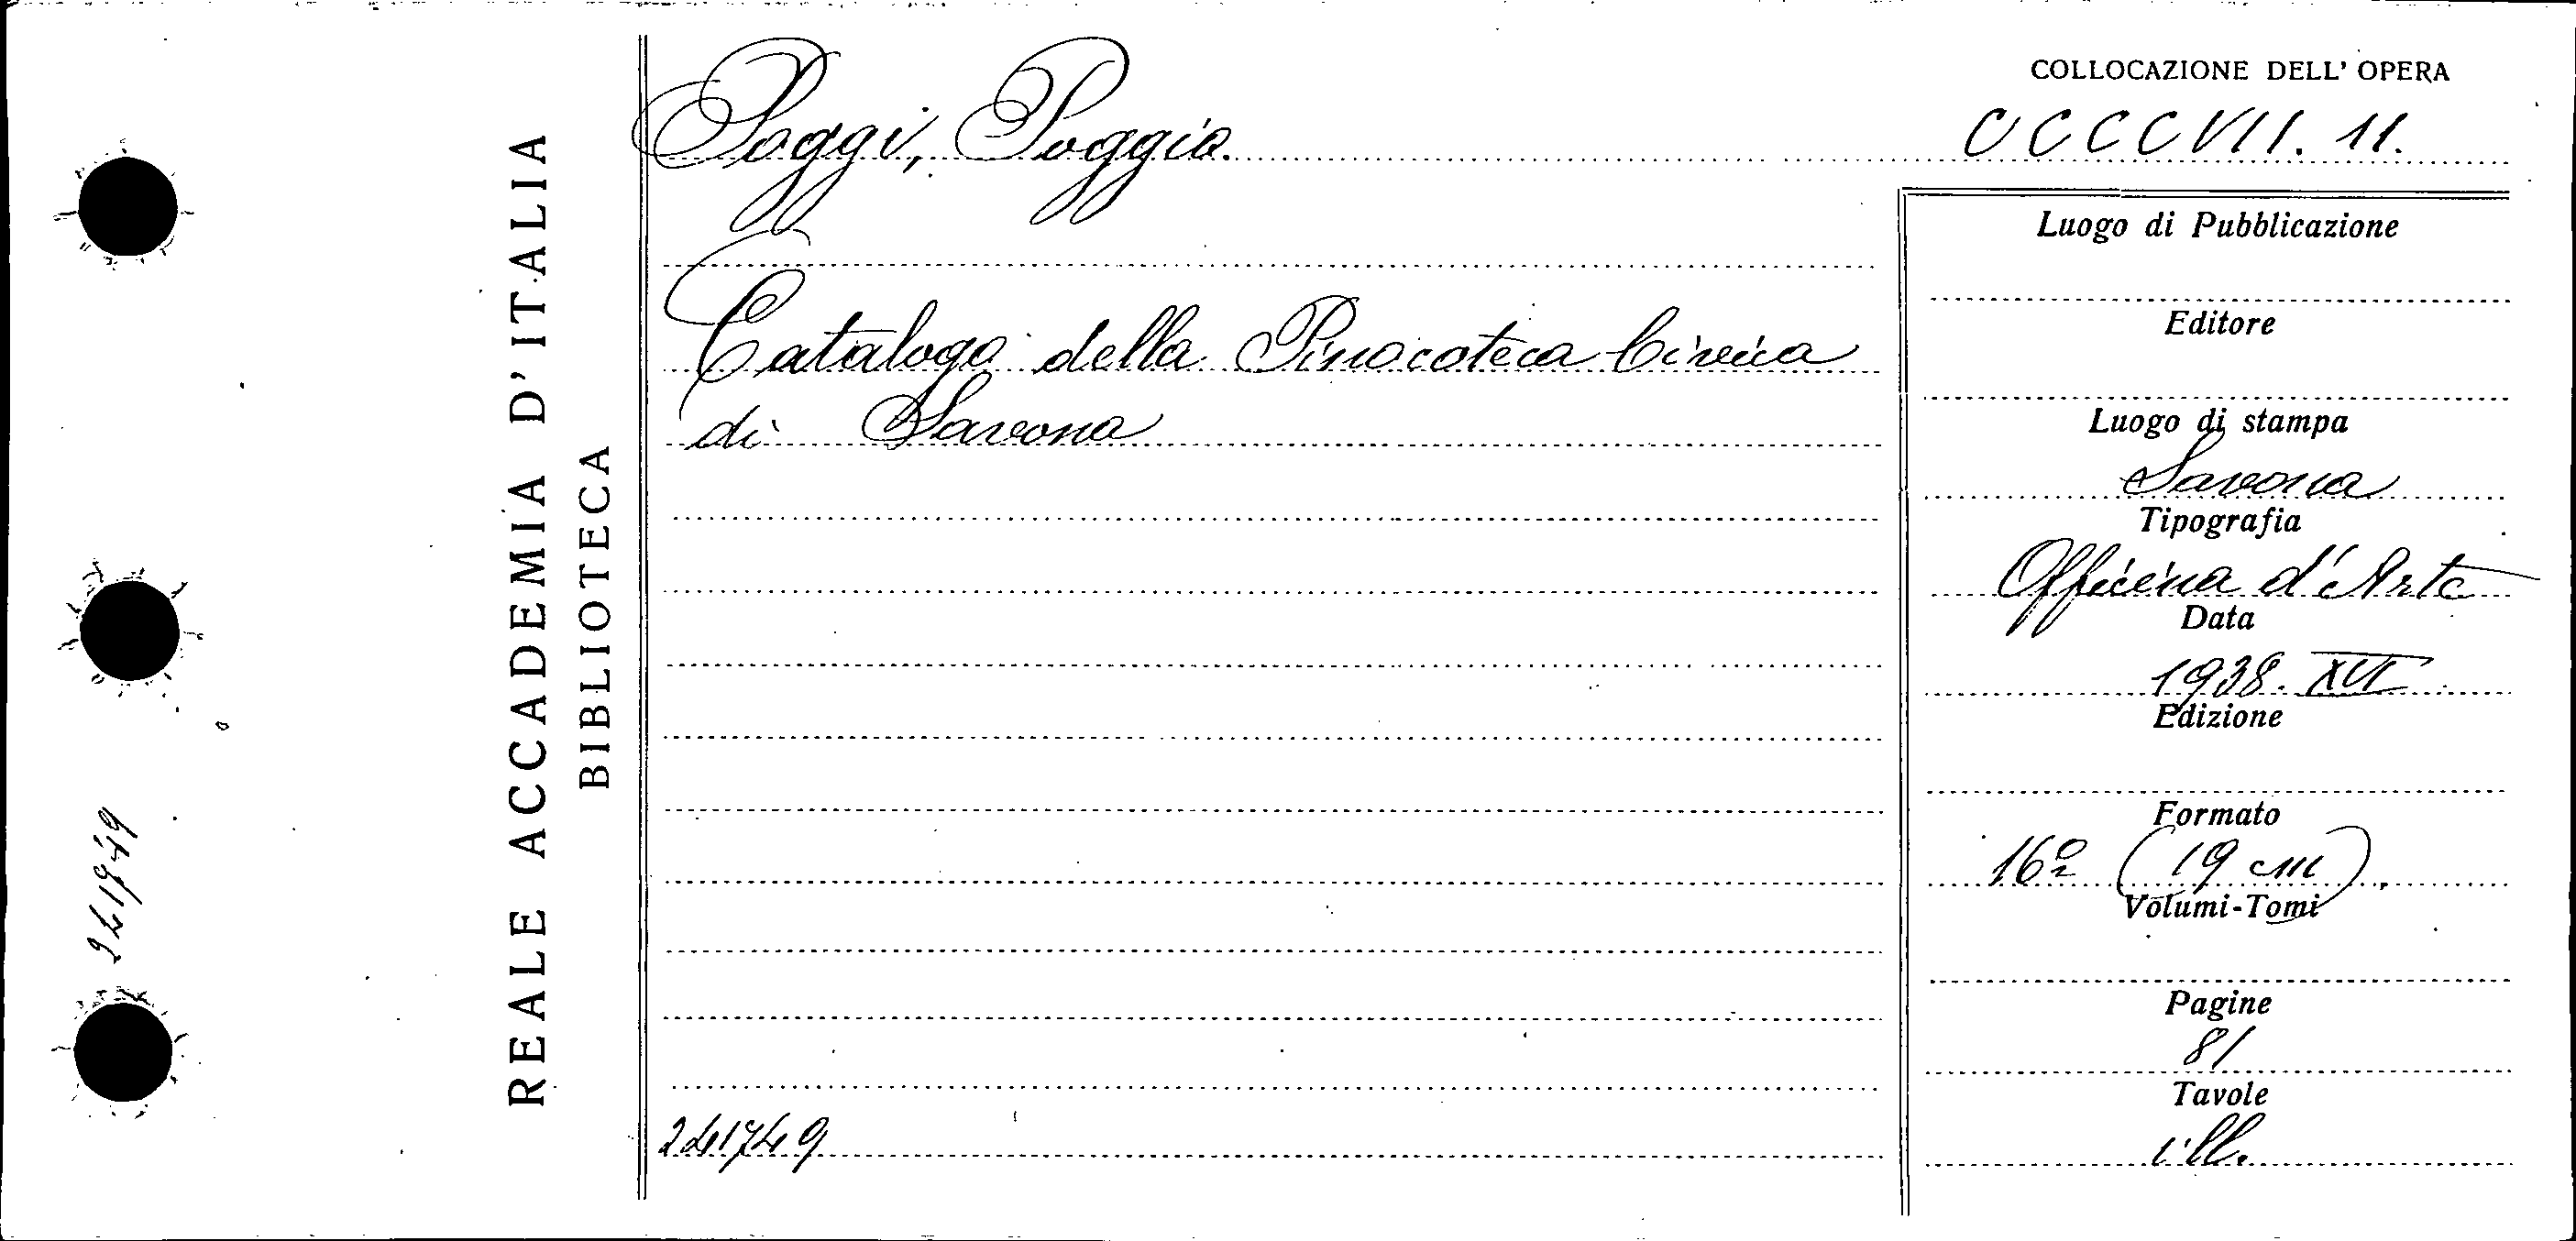 241749
REALE ACCADEMIA D'ITALIA
BIBLIOTECA
Poggi, Poggio.
Catalogo della Pinacoteca Civica
di Savona
241749
COLLOCAZIONE DELL' OPERA
CCCCVII. 11.
Luogo di Pubblicazione
Editore
Luogo di stampa
Savona
Tipografia
Officina d'Arte
Data
1938. XVI
Edizione
Formato
16º (19 cm)
Volumi-Tomi
Pagine
81
Tavole
ill.